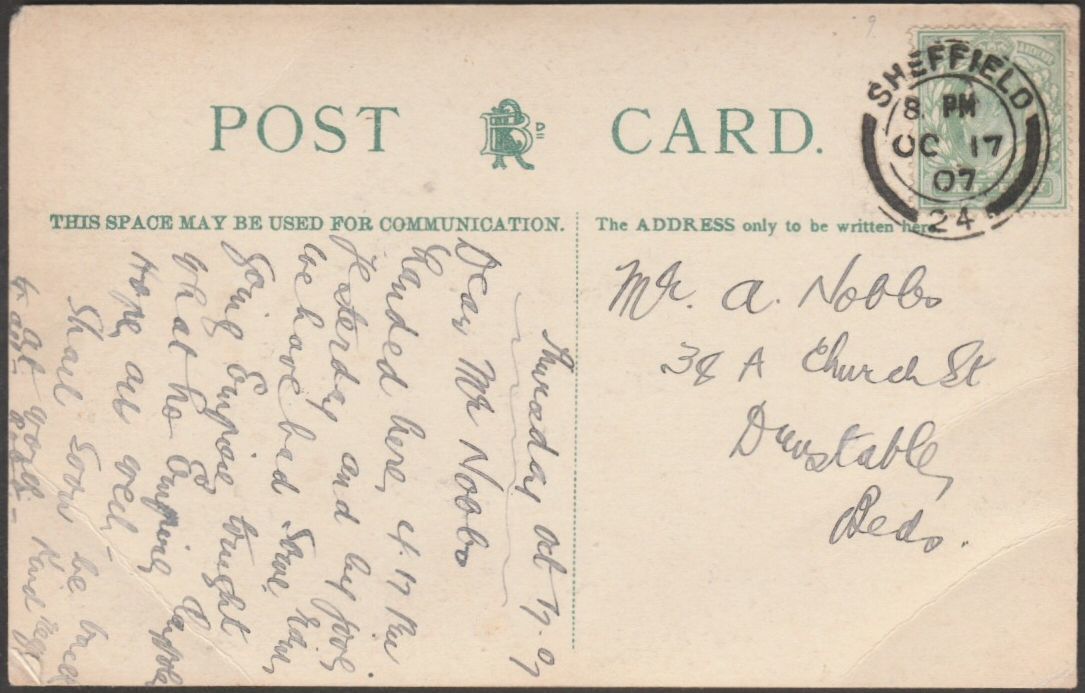 POST RBD CARD.
THIS SPACE MAY BE USED FOR COMMUNICATION.
The ADDRESS only to be written here.
SHEFFIELD
8 PM
OC 17
07
24
Mr. A. Nobbs
38 A Church St
Dunstable,
Beds.
Thursday Oct 17. 07
Dear Mr Nobbs
Landed here, 4.17 PM
Yesterday and by Jove,
we have had some rain,
Going Empire, tonight
What ho Empire,
Hope all well -
Shall soon be back
at work Kind reg
to all